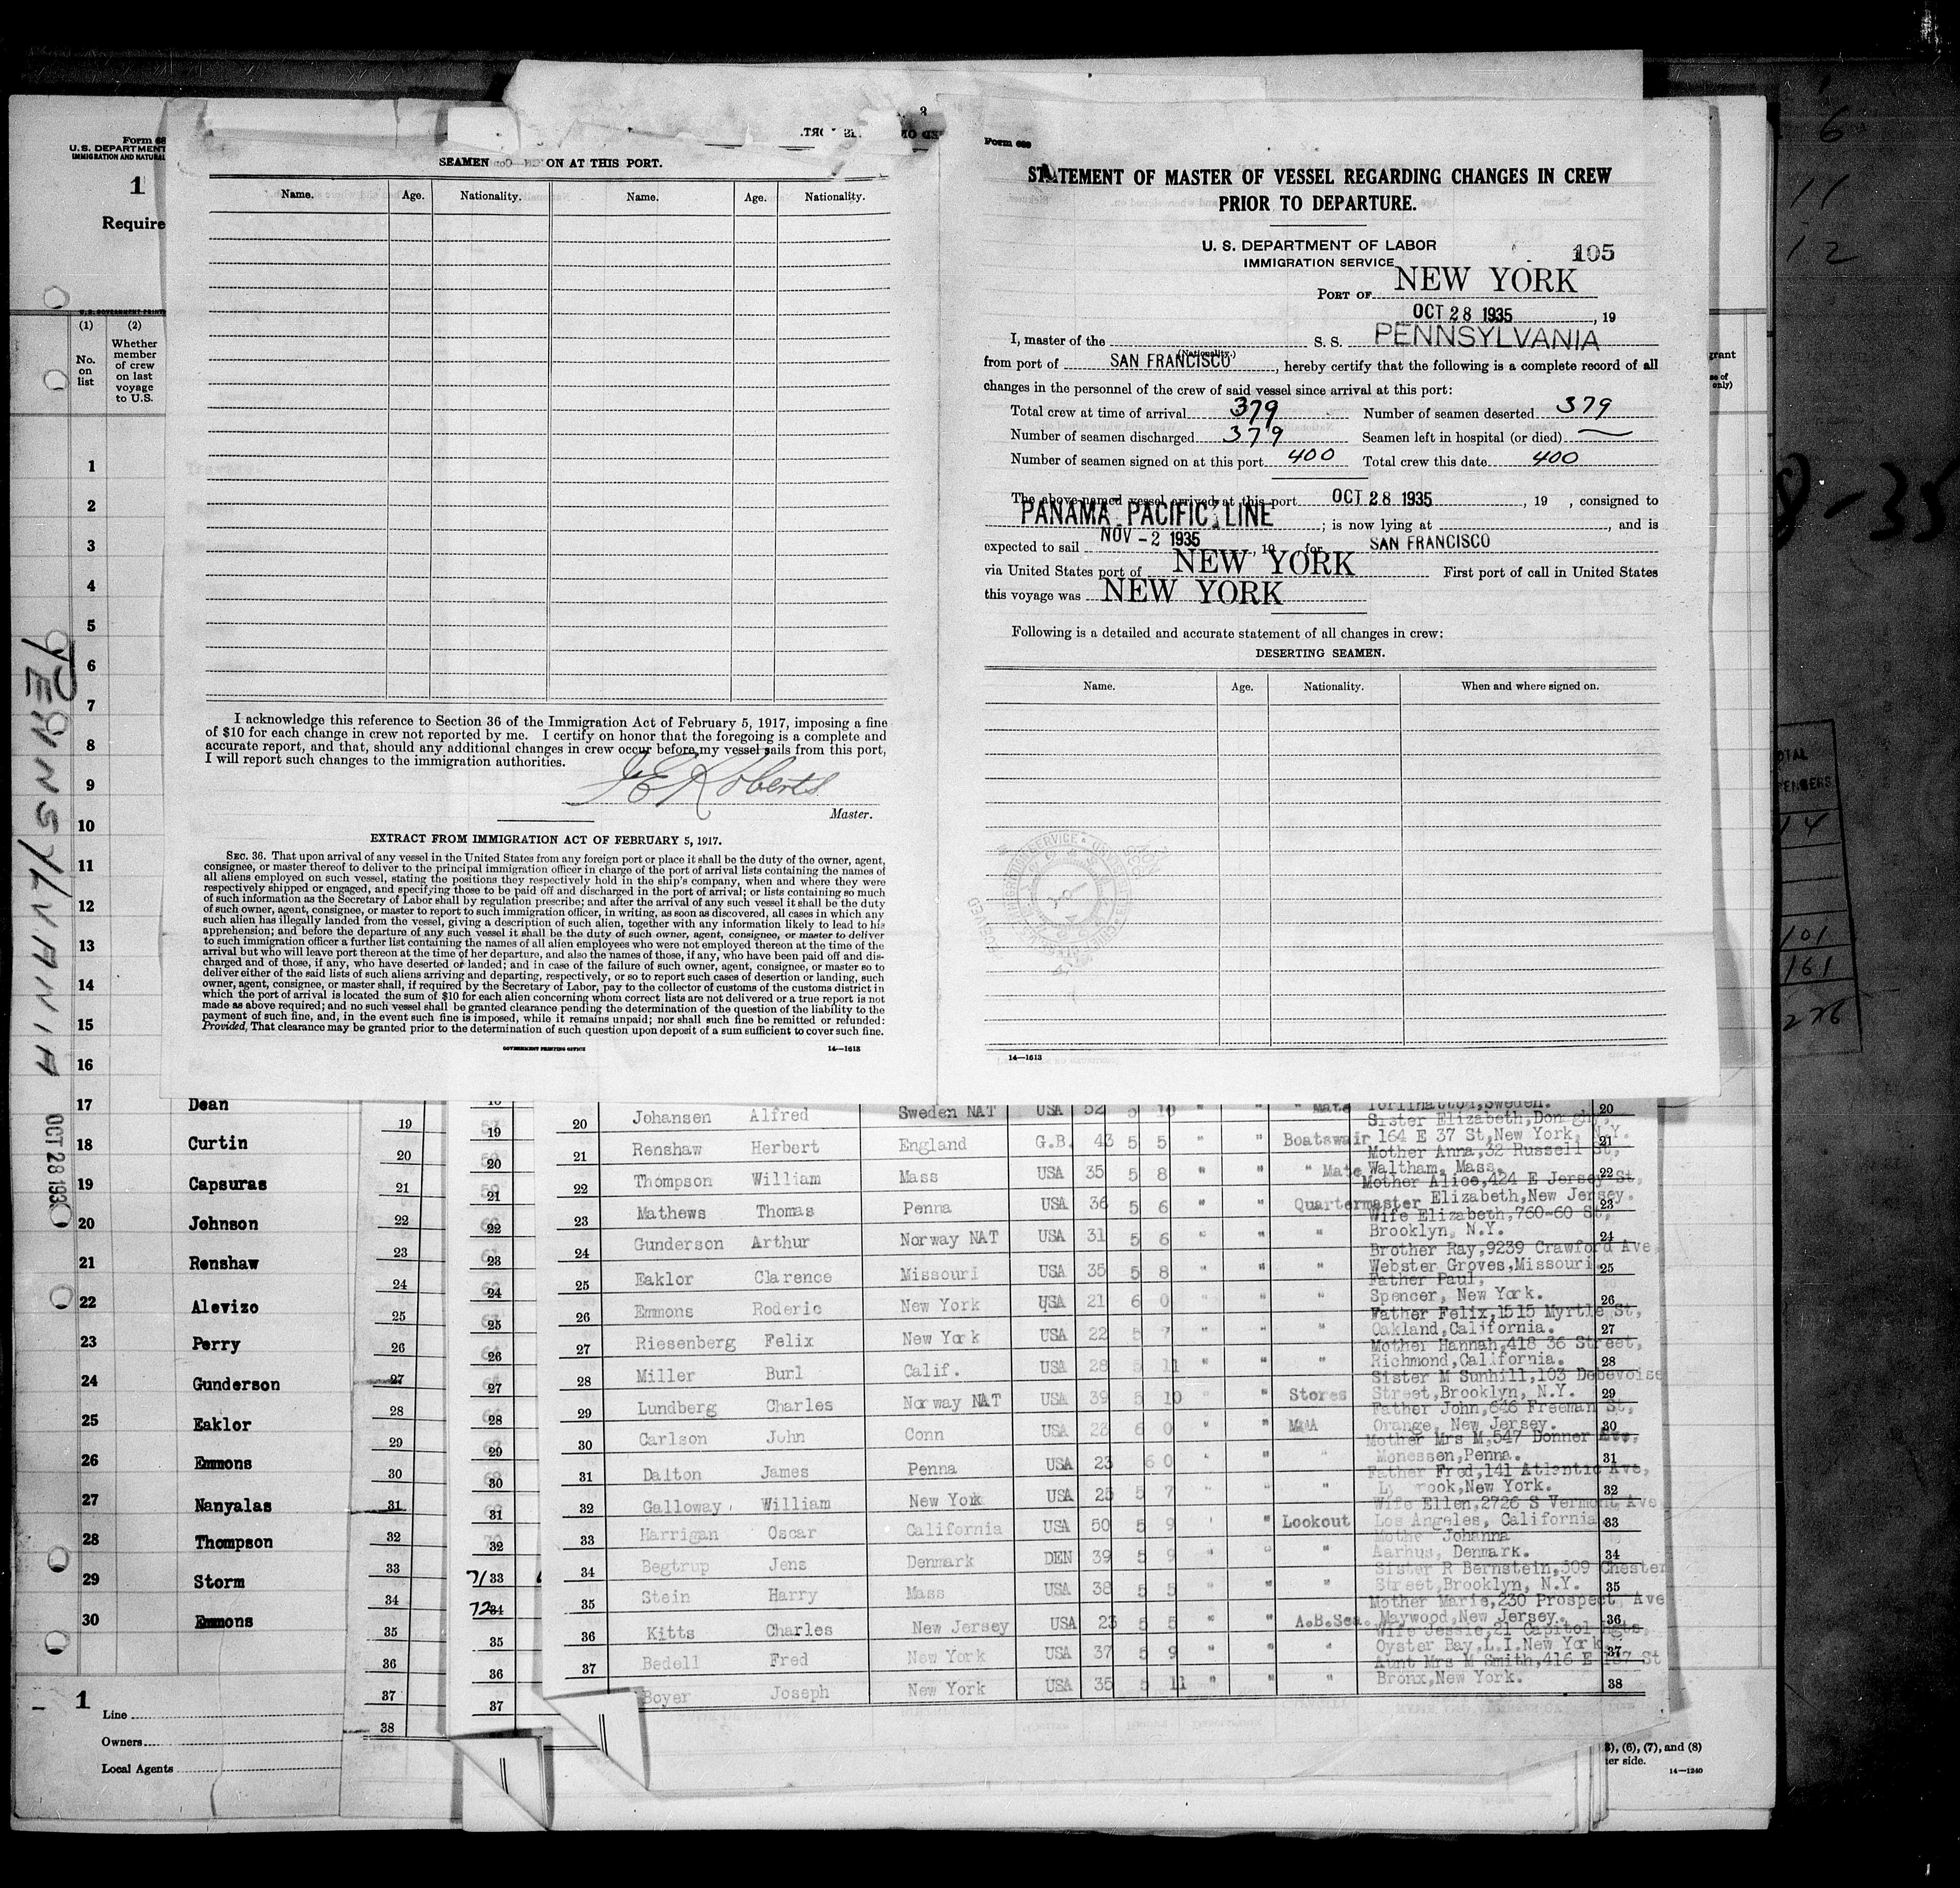 Form 689
STATEMENT OF MASTER OF VESSEL REGARDING CHANGES IN CREW
PRIOR TO DEPARTURE.
U. S. DEPARTMENT OF LABOR
IMMIGRATION SERVICE
105
PORT OF NEW YORK
OCT 28 1935, 19
I, master of the (Nationality.) S. S. PENNSYLVANIA
from port of SAN FRANCISCO, hereby certify that the following is a complete record of all
changes in the personnel of the crew of said vessel since arrival at this port:
Total crew at time of arrival 379 Number of seamen deserted 379
Number of seamen discharged 379 Seamen left in hospital (or died) —
Number of seamen signed on at this port 400 Total crew this date 400
The above-named vessel arrived at this port OCT 28 1935, 19 , consigned to
PANAMA PACIFIC LINE; is now lying at , and is
expected to sail NOV - 2 1935, 19 for SAN FRANCISCO
via United States port of NEW YORK First port of call in United States
this voyage was NEW YORK
Following is a detailed and accurate statement of all changes in crew:
DESERTING SEAMEN.
Name. Age. Nationality. When and where signed on.
14—1613
SEAMEN ON AT THIS PORT.
Name. Age. Nationality. Name. Age. Nationality.
I acknowledge this reference to Section 36 of the Immigration Act of February 5, 1917, imposing a fine
of $10 for each change in crew not reported by me. I certify on honor that the foregoing is a complete and
accurate report, and that, should any additional changes in crew occur before my vessel sails from this port,
I will report such changes to the immigration authorities.
Roberts
Master.
EXTRACT FROM IMMIGRATION ACT OF FEBRUARY 5, 1917.
SEC. 36. That upon arrival of any vessel in the United States from any foreign port or place it shall be the duty of the owner, agent,
consignee, or master thereof to deliver to the principal immigration officer in charge of the port of arrival lists containing the names of
all aliens employed on such vessel, stating the positions they respectively hold in the ship's company, when and where they were
respectively shipped or engaged, and specifying those to be paid off and discharged in the port of arrival; or lists containing so much
of such information as the Secretary of Labor shall by regulation prescribe; and after the arrival of any such vessel it shall be the duty
of such owner, agent, consignee, or master to report to such immigration officer, in writing, as soon as discovered, all cases in which any
such alien has illegally landed from the vessel, giving a description of such alien, together with any information likely to lead to his
apprehension; and before the departure of any such vessel it shall be the duty of such owner, agent, consignee, or master to deliver
to such immigration officer a further list containing the names of all alien employees who were not employed thereon at the time of the
arrival but who will leave port thereon at the time of her departure, and also the names of those, if any, who have been paid off and dis-
charged and of those, if any, who have deserted or landed; and in case of the failure of such owner, agent, consignee, or master so to
deliver either of the said lists of such aliens arriving and departing, respectively, or so to report such cases of desertion or landing, such
owner, agent, consignee, or master shall, if required by the Secretary of Labor, pay to the collector of customs of the customs district in
which the port of arrival is located the sum of $10 for each alien concerning whom correct lists are not delivered or a true report is not
made as above required; and no such vessel shall be granted clearance pending the determination of the question of the liability to the
payment of such fine, and, in the event such fine is imposed, while it remains unpaid; nor shall such fine be remitted or refunded:
Provided, That clearance may be granted prior to the determination of such question upon deposit of a sum sufficient to cover such fine.
GOVERNMENT PRINTING OFFICE 14—1613
Form 68
U.S. DEPARTMENT
IMMIGRATION AND NATURAL
1
Require
(1) (2)
No. on list
Whether member of crew on last voyage to U.S.
1
2
3
4
5
6
7
8
9
10
11
12
13
14
15
16
17 Dean
18 Curtin
19 Capsuras
20 Johnson
21 Renshaw
22 Alevizo
23 Perry
24 Gunderson
25 Eaklor
26 Emmons
27 Nanyalas
28 Thompson
29 Storm
30 Emmons
PENNSYLVANIA
OCT 28 193
1
Line
Owners
Local Agents
20 Johansen Alfred Sweden NAT USA 52 5 10 " " " Mate 20
21 Renshaw Herbert England G.B. 43 5 5 " " Boatswain 164 E 37 St,New York, N.Y. 21
Mother Anna,32 Russell St,
22 Thompson William Mass USA 35 5 8 " " " Mate Waltham, Mass. 22
Mother Alice,424 E Jersey St,
23 Mathews Thomas Penna USA 36 5 6 " " Quartermaster Elizabeth,New Jersey. 23
Wife Elizabeth,760-60 St,
24 Gunderson Arthur Norway NAT USA 31 5 6 " " " Brooklyn, N.Y. 24
Brother Ray,9239 Crawford Ave
25 Eaklor Clarence Missouri USA 35 5 8 " " " Webster Groves,Missouri 25
Father Paul,
26 Emmons Roderic New York USA 21 6 0 " " " Spencer, New York. 26
Father Felix,1515 Myrtle St,
27 Riesenberg Felix New York USA 22 5 7 " " " Oakland,California. 27
Mother Hannah,418 36 Street,
28 Miller Burl Calif. USA 28 5 11 " " " Richmond,California. 28
Sister M Sunhill,103 Debevoise
29 Lundberg Charles Norway NAT USA 39 5 10 " " Stores Street,Brooklyn, N.Y. 29
Father John,646 Freeman St,
30 Carlson John Conn USA 23 6 0 " Orange, New Jersey. 30
Mother Mrs M,547 Donner Ave,
31 Dalton James Penna USA 23 6 0 " " " Monessen,Penna. 31
Father Fred,141 Atlantic Ave,
32 Galloway William New York USA 25 5 7 " " " rook,New York. 32
Wife Ellen,2726 S Vermont Ave
33 Harrigan Oscar California USA 50 5 9 " " Lookout Los Angeles, California 33
Mothe Johanna
34 Begtrup Jens Denmark DEN 39 5 9 " " " Aarhus, Denmark. 34
Sister R Bernstein,509 Chester
35 Stein Harry Mass USA 38 5 5 " " " Street,Brooklyn, N.Y. 35
Mother Marie,230 Prospect Ave
36 Kitts Charles New Jersey USA 23 5 5 " " A.B.Sea. Maywood,New Jersey. 36
Wife Jessie,21 Capitol Hgts,
37 Bedell Fred New York USA 37 5 9 " " " Oyster Bay,L.I.New York 37
Aunt Mrs M Smith,416 E 187 St
Boyer Joseph New York USA 35 5 11 " " " Bronx,New York. 38
6), (6), (7), and (8)
14—1240